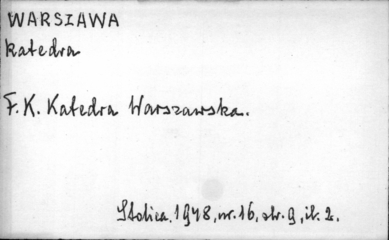 WARSZAWA
katedra
F.K. Katedra Warszawska.
Stolica. 1948, nr. 16, str. 9, il. 2.